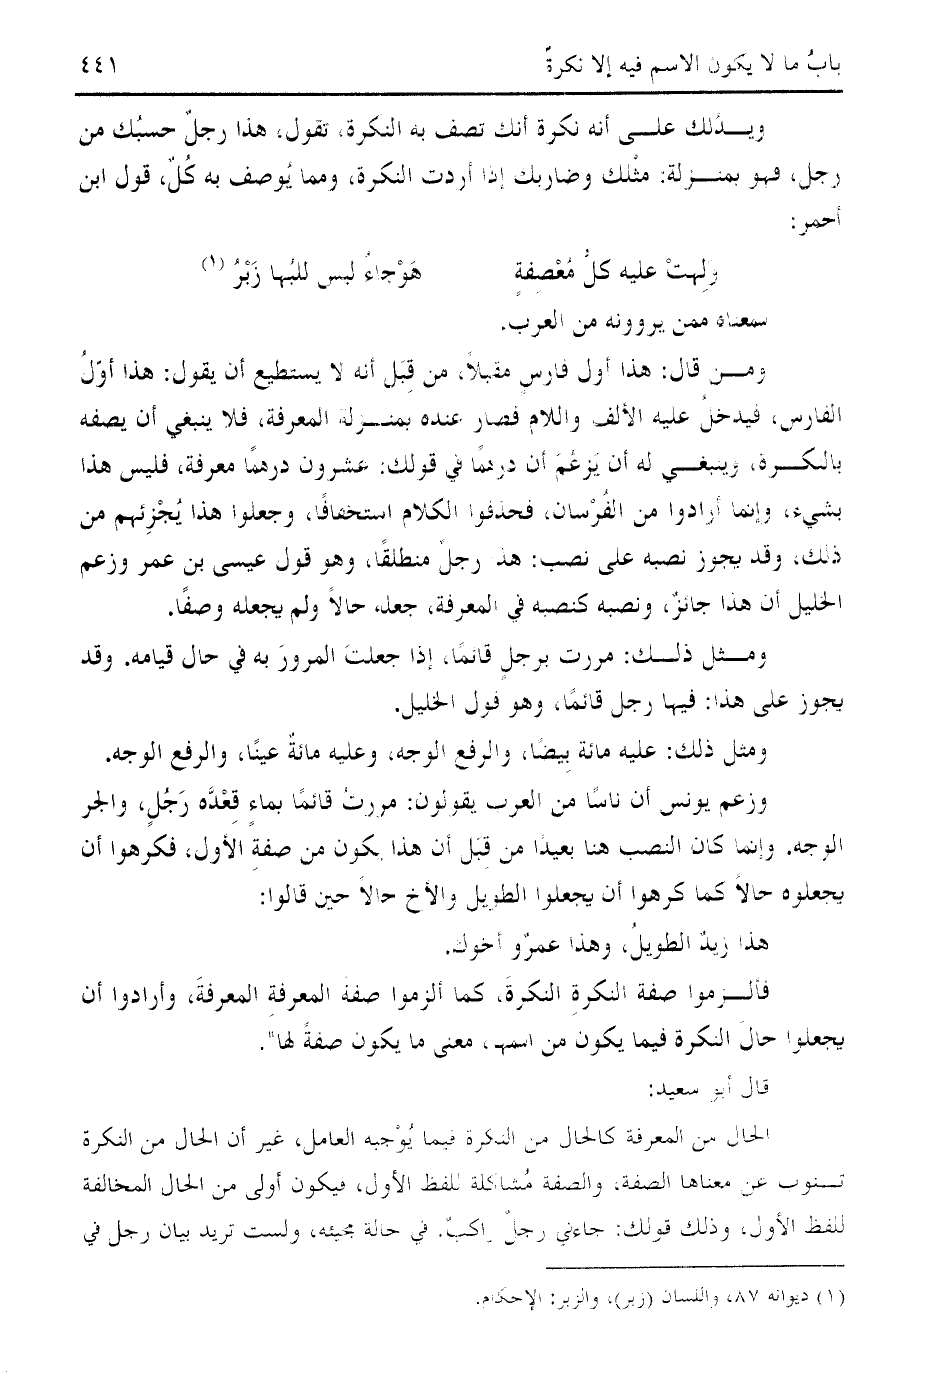 بابُ ما لا يكون الاسم فيه إلا نكرةً ٤٤١
ويدُلك على أنه نكرة أنك تصف به النكرة، تقول، هذا رجلٌ حسبُك من
رجل، فهو بمنزلة: مثْلك وضاربك إذا أردت النكرة، ومما يُوصف به كُلّ، قول ابن
أحمر:
ولهتْ عليه كلُّ مُعْصفةٍ هَوْجاءُ ليس للبُها زَبْرُ (١)
سمعناه ممن يروونه من العرب.
ومن قال: هذا أول فارسٍ مقبلاً، من قِبَل أنه لا يستطيع أن يقول: هذا أوّلُ
الفارس، فيدخلُ عليه الألف واللام فصار عنده بمنزلة المعرفة، فلا ينبغي أن يصفه
بالنكرة، وينبغي له أن يَزعُمَ أن درهمًا في قولك: عشرون درهمًا معرفة، فليس هذا
بشيء، وإنما أرادوا من الفُرْسان، فحذفوا الكلام استخفافًا، وجعلوا هذا يُجْزِئهم من
ذلك، وقد يجوز نصبه على نصب: هذ رجلٌ منطلقًا، وهو قول عيسى بن عمر وزعم
الخليل أن هذا جائزٌ، ونصبه كنصبه في المعرفة، جعله حالاً ولم يجعله وصفًا.
ومثل ذلك: مررت برجلٍ قائمًا، إذا جعلتَ المرورَ به في حال قيامه. وقد
يجوز على هذا: فيها رجل قائمًا، وهو قول الخليل.
ومثل ذلك: عليه مائة بِيضًا، والرفع الوجه، وعليه مائةٌ عينًا، والرفع الوجه.
وزعم يونس أن ناسًا من العرب يقولون: مررتُ قائمًا بماءٍ قِعْدَّه رَجُلٍ، والجر
الوجه. وإنما كان النصب هنا بعيدًا من قِبَل أن هذا يكون من صفةِ الأول، فكرهوا أن
يجعلوه حالاً كما كرهوا أن يجعلوا الطويل والأخ حالاً حين قالوا:
هذا زيدٌ الطويلُ، وهذا عمرٌو أخوك.
فألزموا صفة النكرةِ النكرةَ، كما ألزموا صفة المعرفة المعرفةَ، وأرادوا أن
يجعلوا حالَ النكرة فيما يكون من اسمه، معنى ما يكون صفةً لها".
قال أبو سعيد:
الحال من المعرفة كالحال من النكرة فيما يُوْجبه العامل، غير أن الحال من النكرة
تنوب عن معناها الصفة، والصفة مُشاكلة للفظ الأول، فيكون أولى من الحال المخالفة
للفظ الأول، وذلك قولك: جاءني رجلٌ راكبٌ. في حالة مجيئه، ولست تريد بيان رجل في
(١) ديوانه ٨٧، واللسان (زبر)، والزبر: الإحكام.